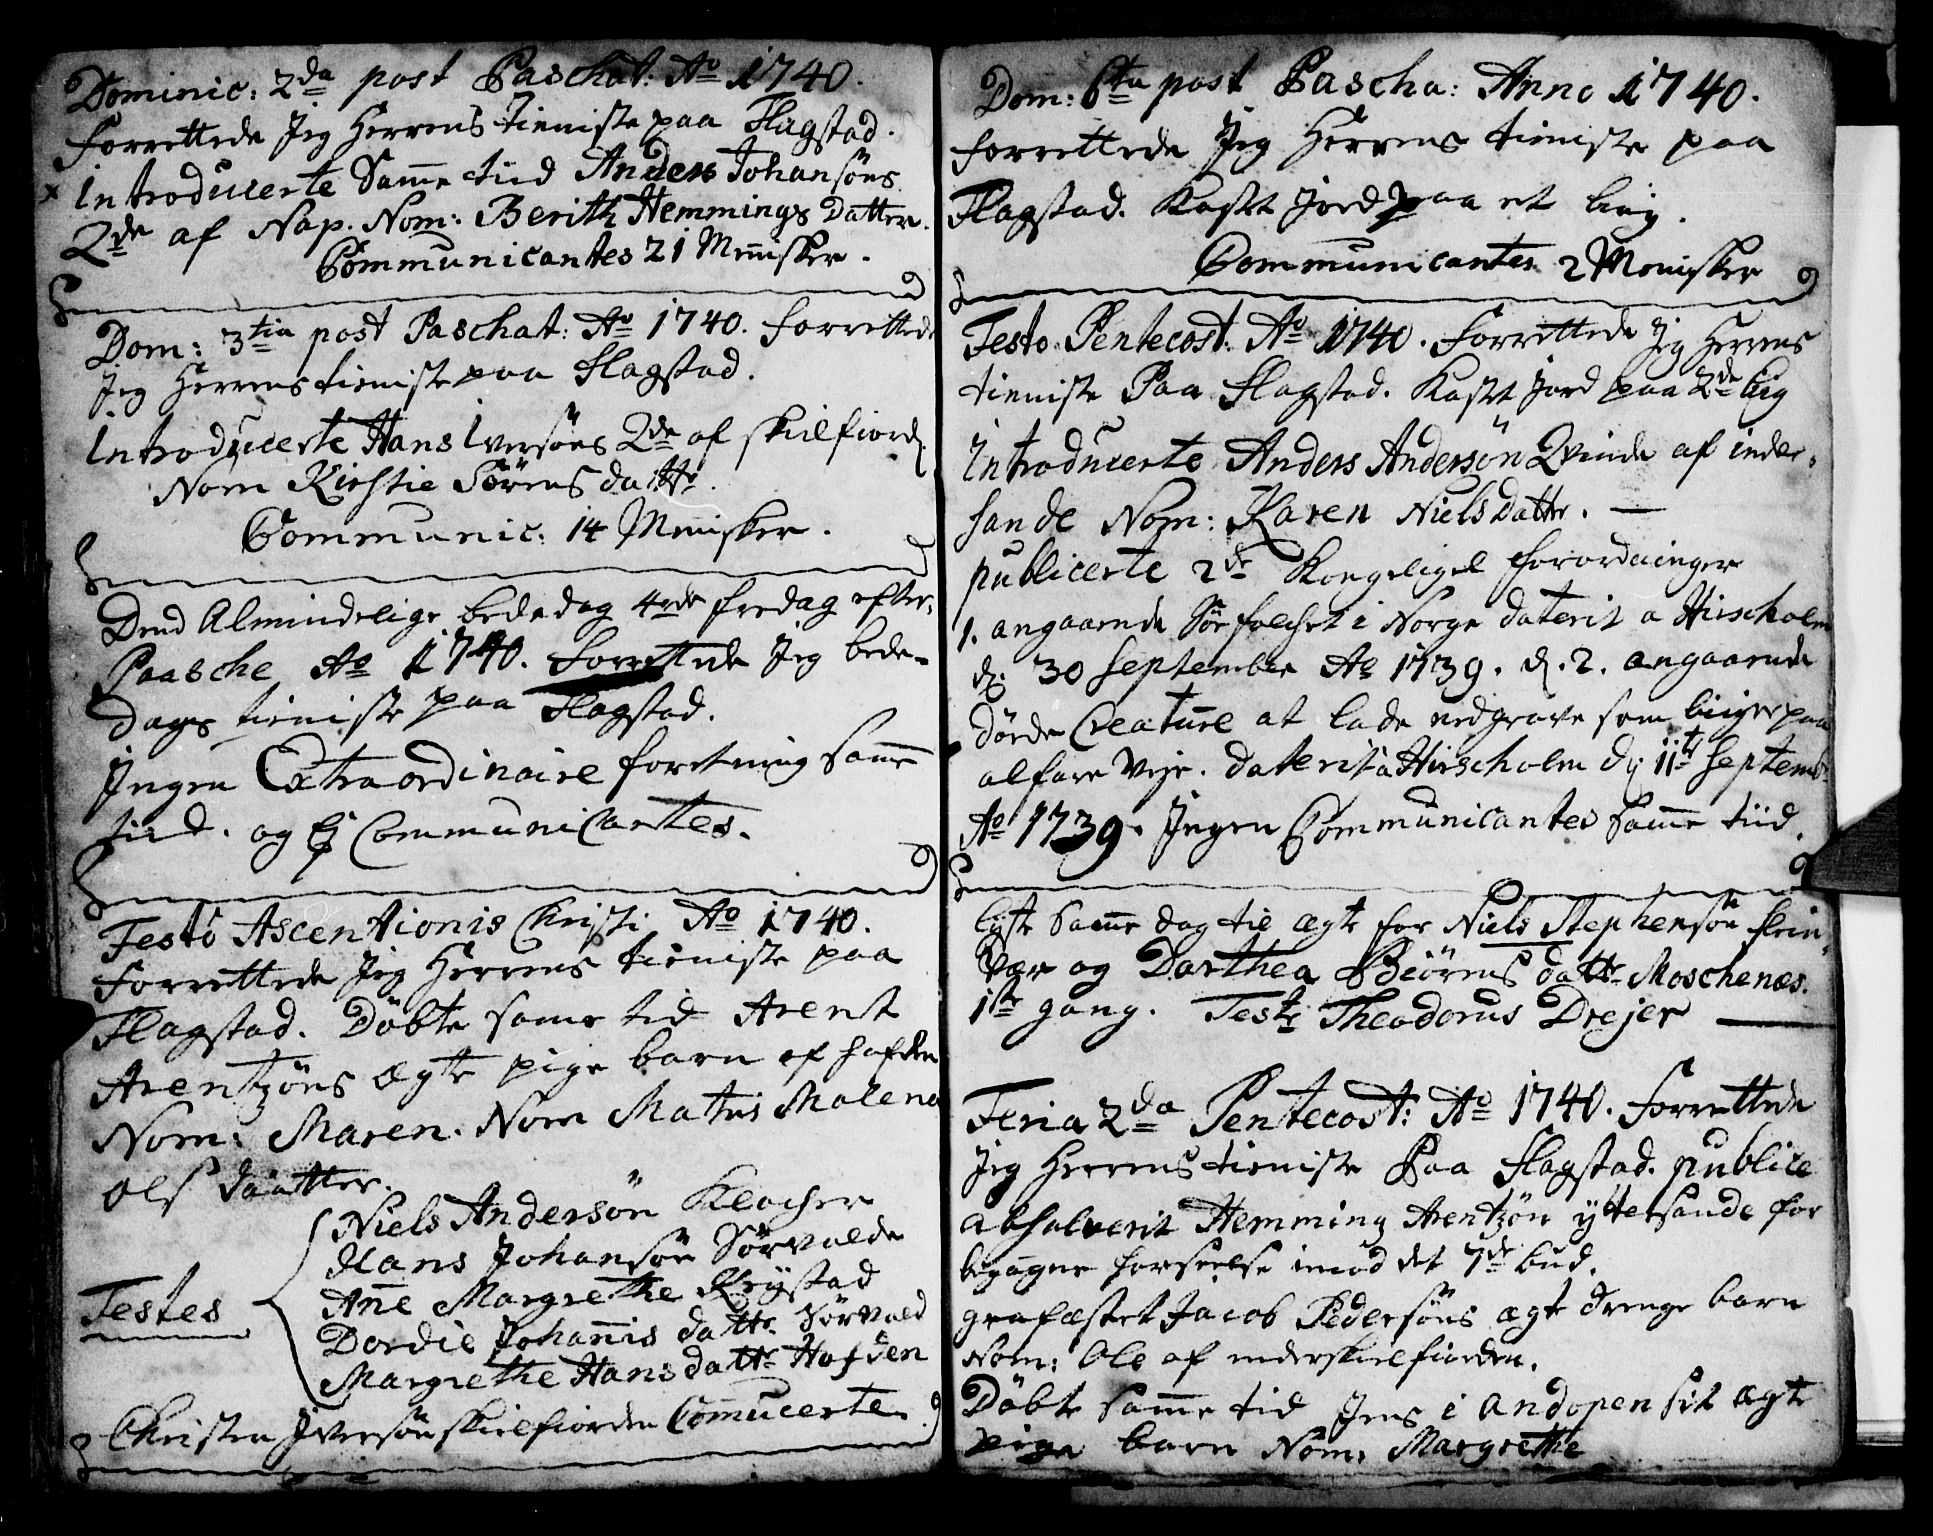 Dominic: 2da post Paschat: Ao 1740.
Forrettede Jeg Herrens tieniste paa Flagstad.
x Introducerte Samme tiid Anders Johansöns
2de af Nap. Nom: Berith Hemmings Datter.
Communicantes 21 Mennisker.
Dom: 3tia post Paschat: Ao 1740. forrettede
Jeg Herrens tieniste paa Flagstad.
Introducerte Hans Iversöns 2de af skielfiord.
Nom Kirstie Sörens datter.
Communic: 14 Mennisker.
Dend Almindelige bededag 4rde fredag efter
Paasche Ao 1740. Forrettede Jeg bede-
dags tieniste paa Flagstad.
Ingen Extraordinaire forretning samme
tiid. og Ej Communicantes.
Festo Ascentionis Christi Ao 1740.
Forrettede Jeg Herrens tieniste paa
Flagstad. Döbte same tid Arent
Arentzöns ægte pige barn af hafden
Nom: Maren. Nom Matris Malena
Ols daatter.
Niels Andersön Klocher
Hans Johansön Sörvalde
Anne Margrethe
Testes
Dordie Johannis datter Sörvald
Margrethe Hans datter Hafden
Christen Iversön skielfiorden Comucerte
Dom: 6ta post Pascha: Anno 1740.
forrettede Jeg Herrens tieniste paa
Flagstad. Kast Jord paa et liig.
Communicantes 2 Menisker
Festo Pentecost: Ao 1740. Forrettede Jeg Herrens
tieniste Paa Flagstad. Kast Jord paa 2de liig
Introducerte Anders Andersön Qvinde af inder-
sande Nom: Karen Nielsdatter.
publicerte 2de Kongelige forordninger
1. angaaende Söe folchet i Norge daterit a Hirscholm
d. 30 September Ao 1739. d. 2. angaaende
döde Creature at lade nedgrave som liiger paa
alfare Veje. daterit a Hirscholm d. 11t Septemb
Ao 1739. Ingen Communicantes samme tiid.
lyste samme dag til ægte for Niels Stephensön
vær og Dorthea Biörens datter Moschenæs.
1ste gang. Teste Theodorus Drejer
Feria 2da Pentecost: Ao 1740. Forrettede
Jeg Herrens tieniste Paa Flagstad. publice
absolverit Hemming Arentzön yttersande for
begangne forseelse imod det 7de bud.
grafæstet Jacob Pedersöns ægte drenge barn
Nom: Ole af inderskielfiorden.
Döbte samme tid Jens i Andopen sit ægte
pige barn Nom: Margrethe